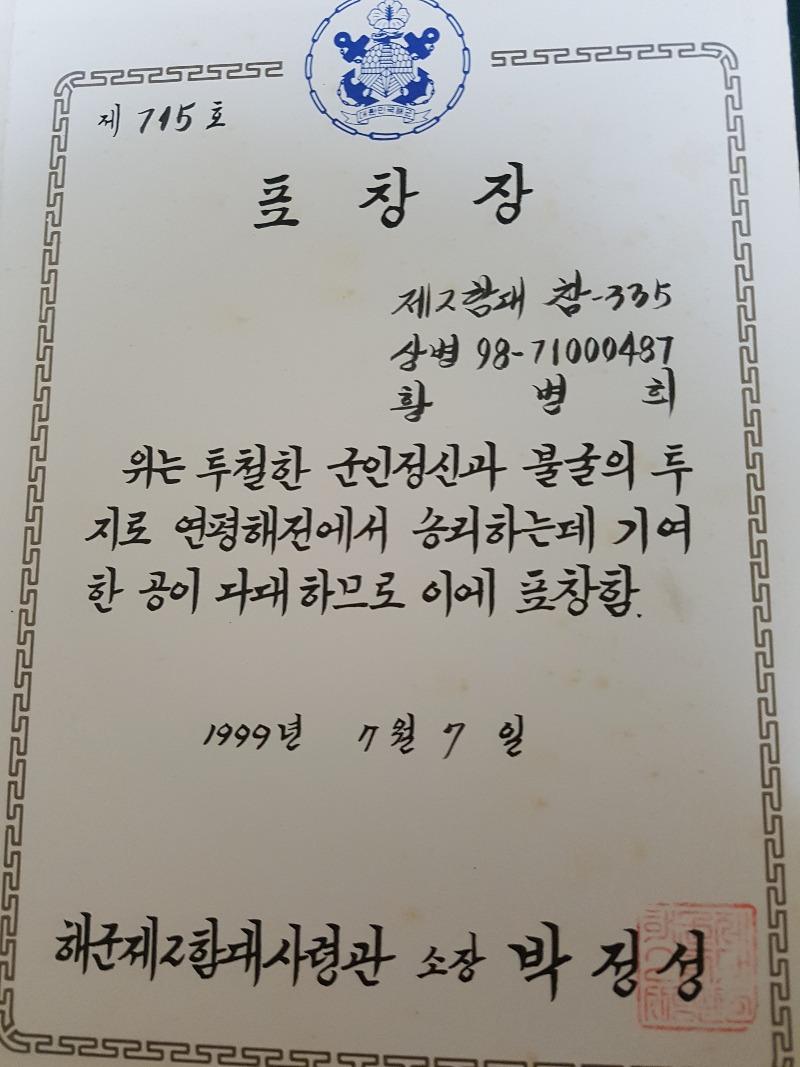 대한민국해군
제 715 호
표 창 장
제2함대 참-335
상병 98-71000487
황 병 희
위는 투철한 군인정신과 불굴의 투
지로 연평해전에서 승리하는데 기여
한 공이 다대하므로 이에 표창함.
1999년 7월 7일
해군제2함대사령관 소장 박정성